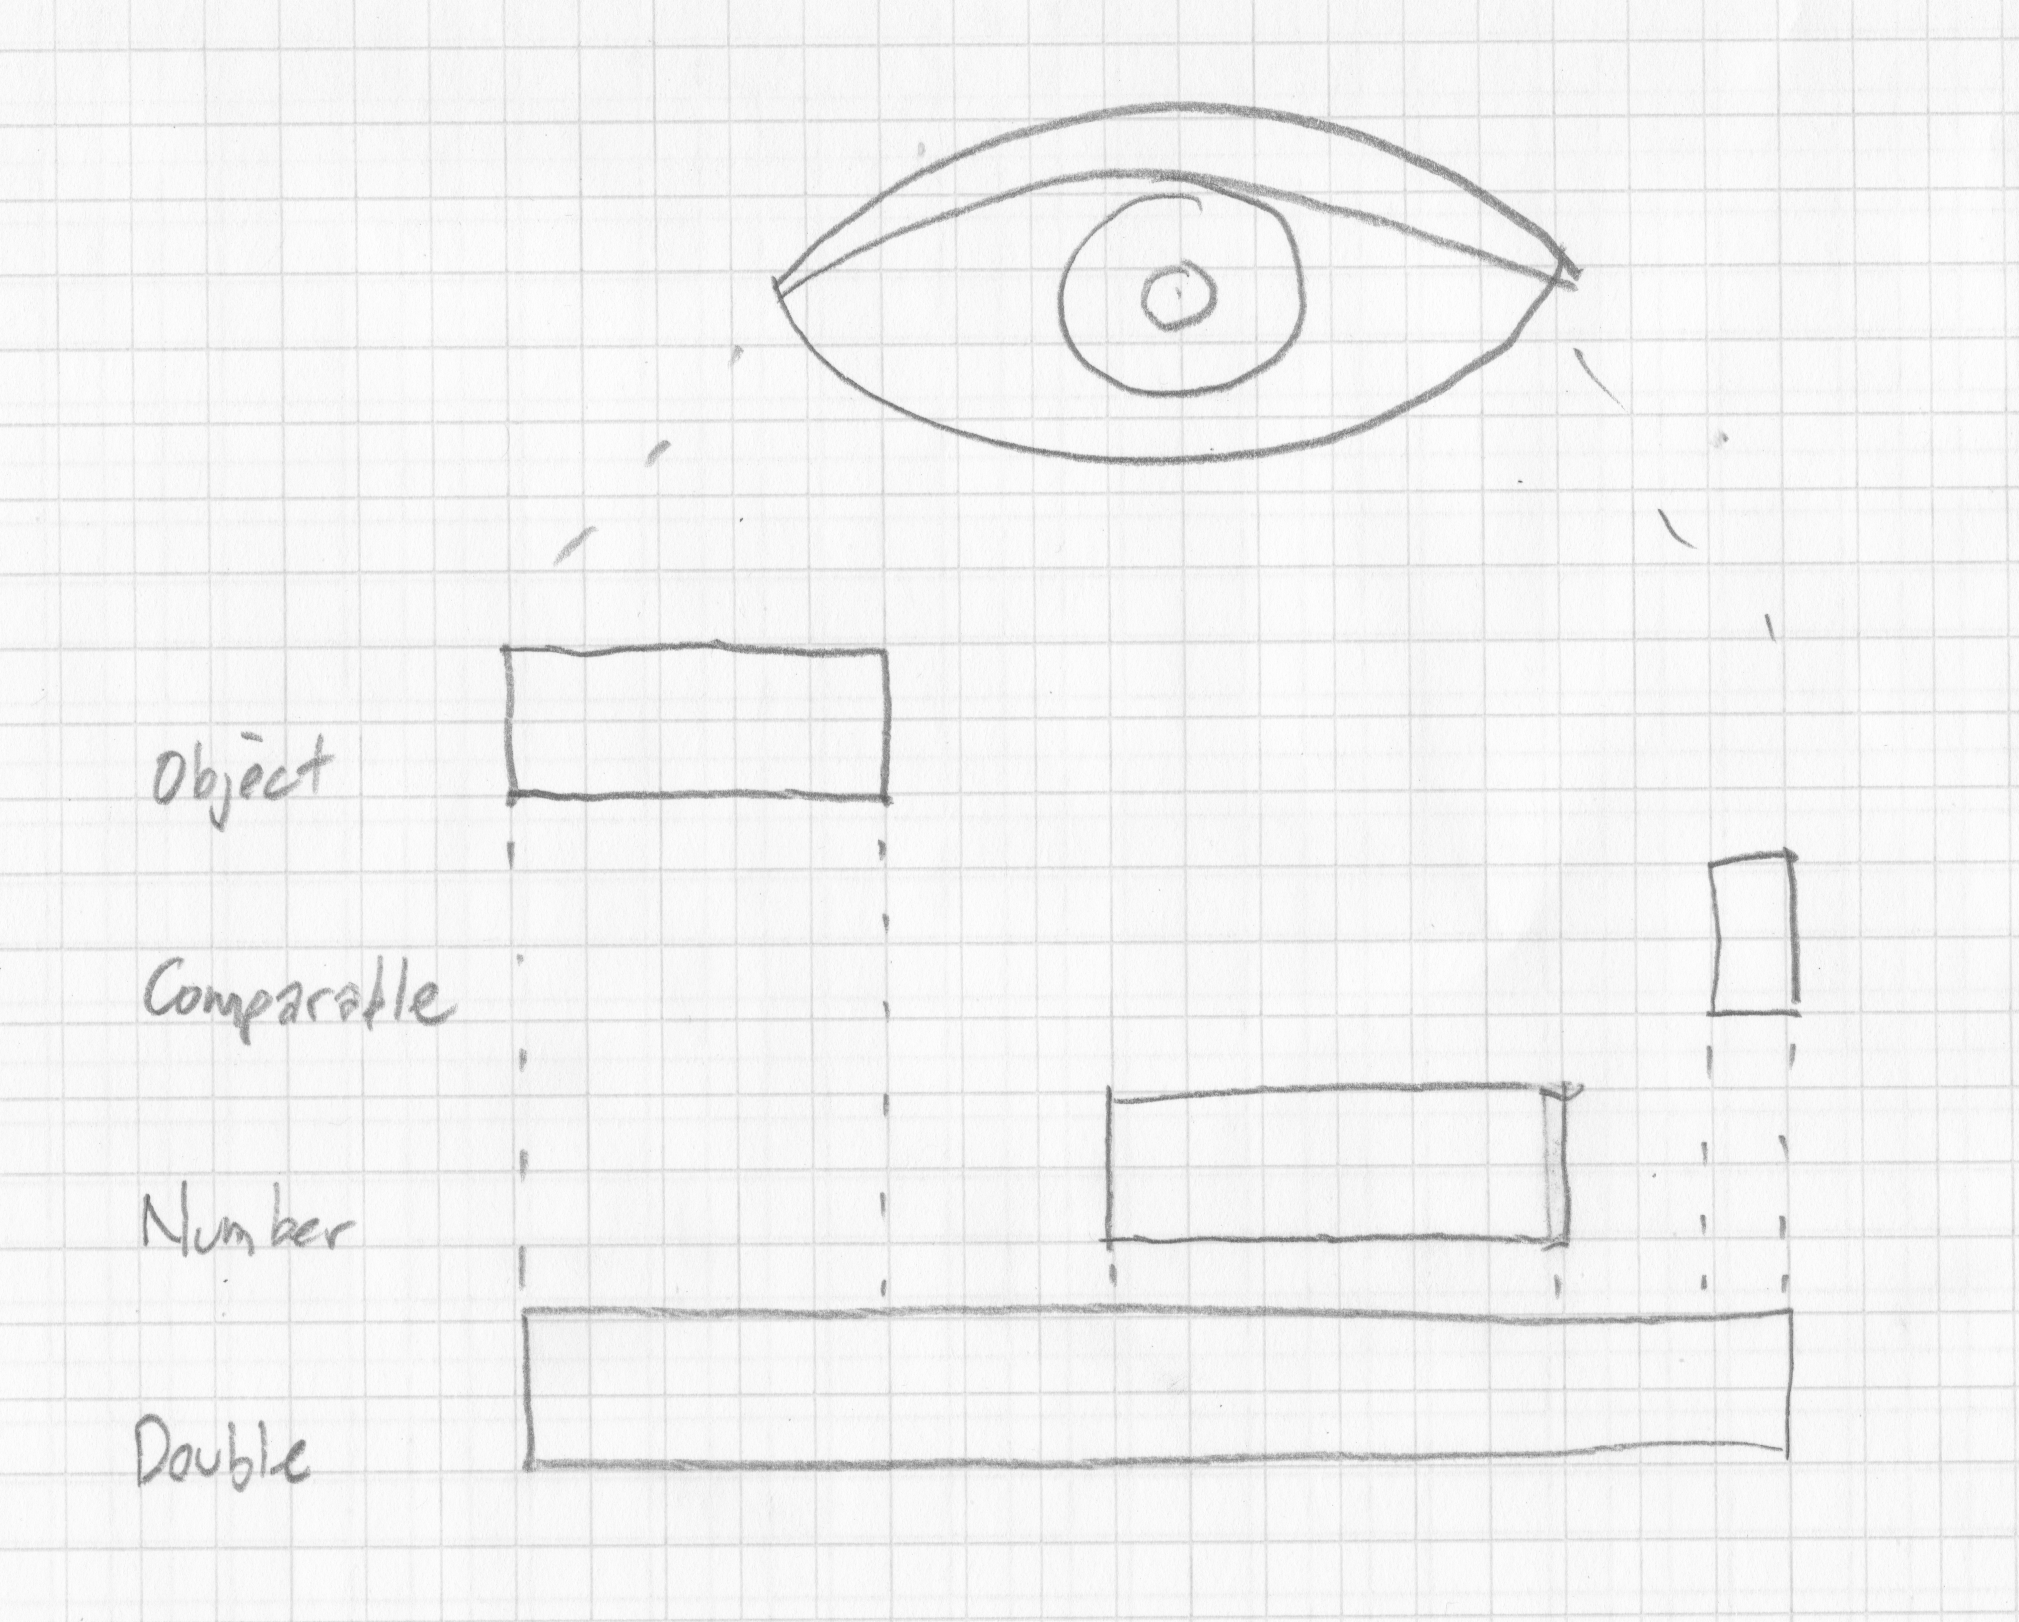 Object
Comparable
Number
Double